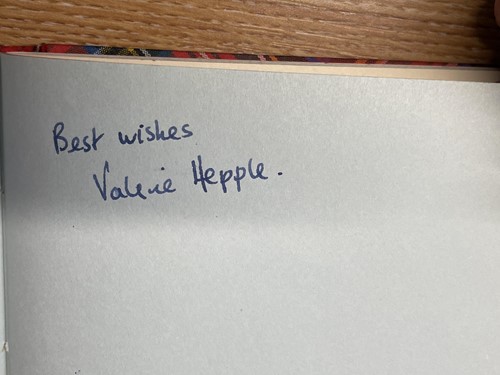 Best wishes
Valerie Hepple.